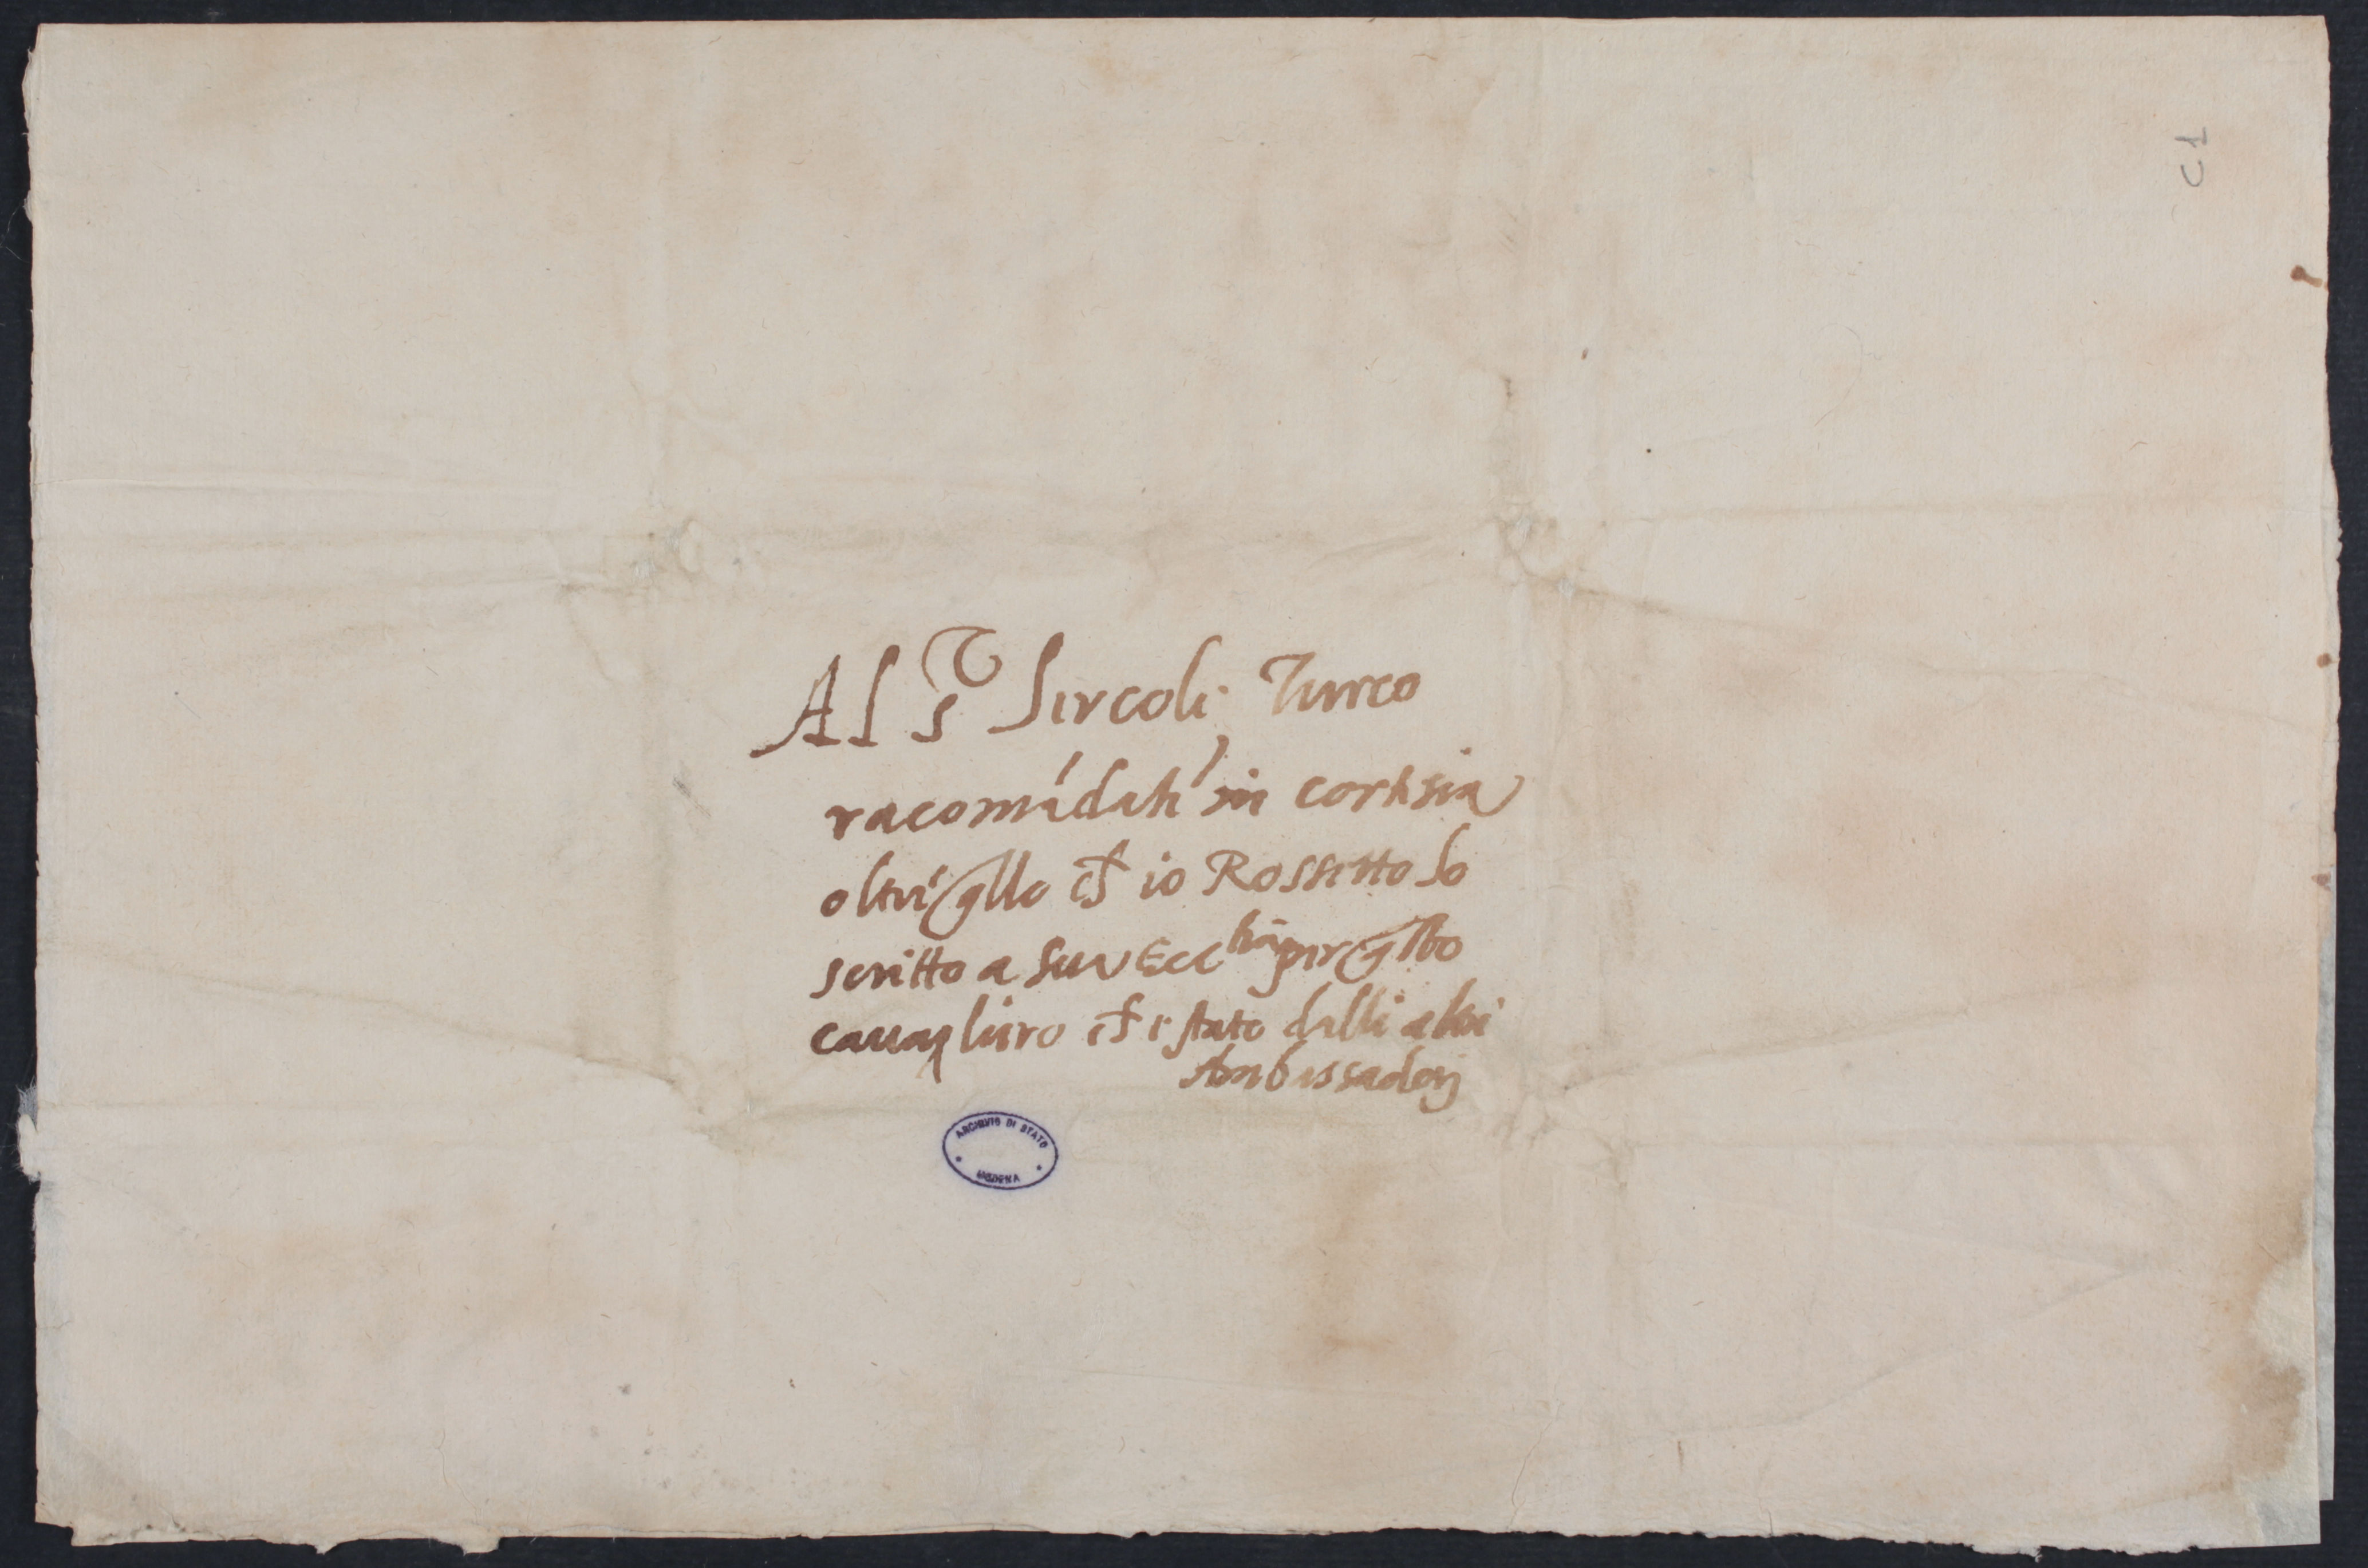 Al S.r Sircoli Turco
racomādati in cortesia
oltre qllo ch io Rossetto ho
scritto a sua Ecc.tia per qsto
cauagliero ch e stato dalli altri
Ambassadorj
ARCHIVIO DI STATO
MODENA
C1